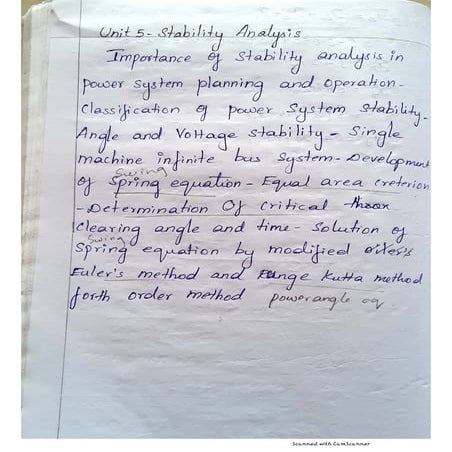 Unit 5 - Stability Analysis
Importance of Stability analysis in
power system planning and operation -
Classification of power System Stability -
Angle and Voltage stability - Single
machine infinite bus System - Development
Swing
of Spring equation - Equal area creterion
- Determination Of critical
Clearing angle and time - Solution of
Swing
Spring equation by modified
Euler's method and Runge Kutta method
forth order method power angle eq
Scanned with CamScanner